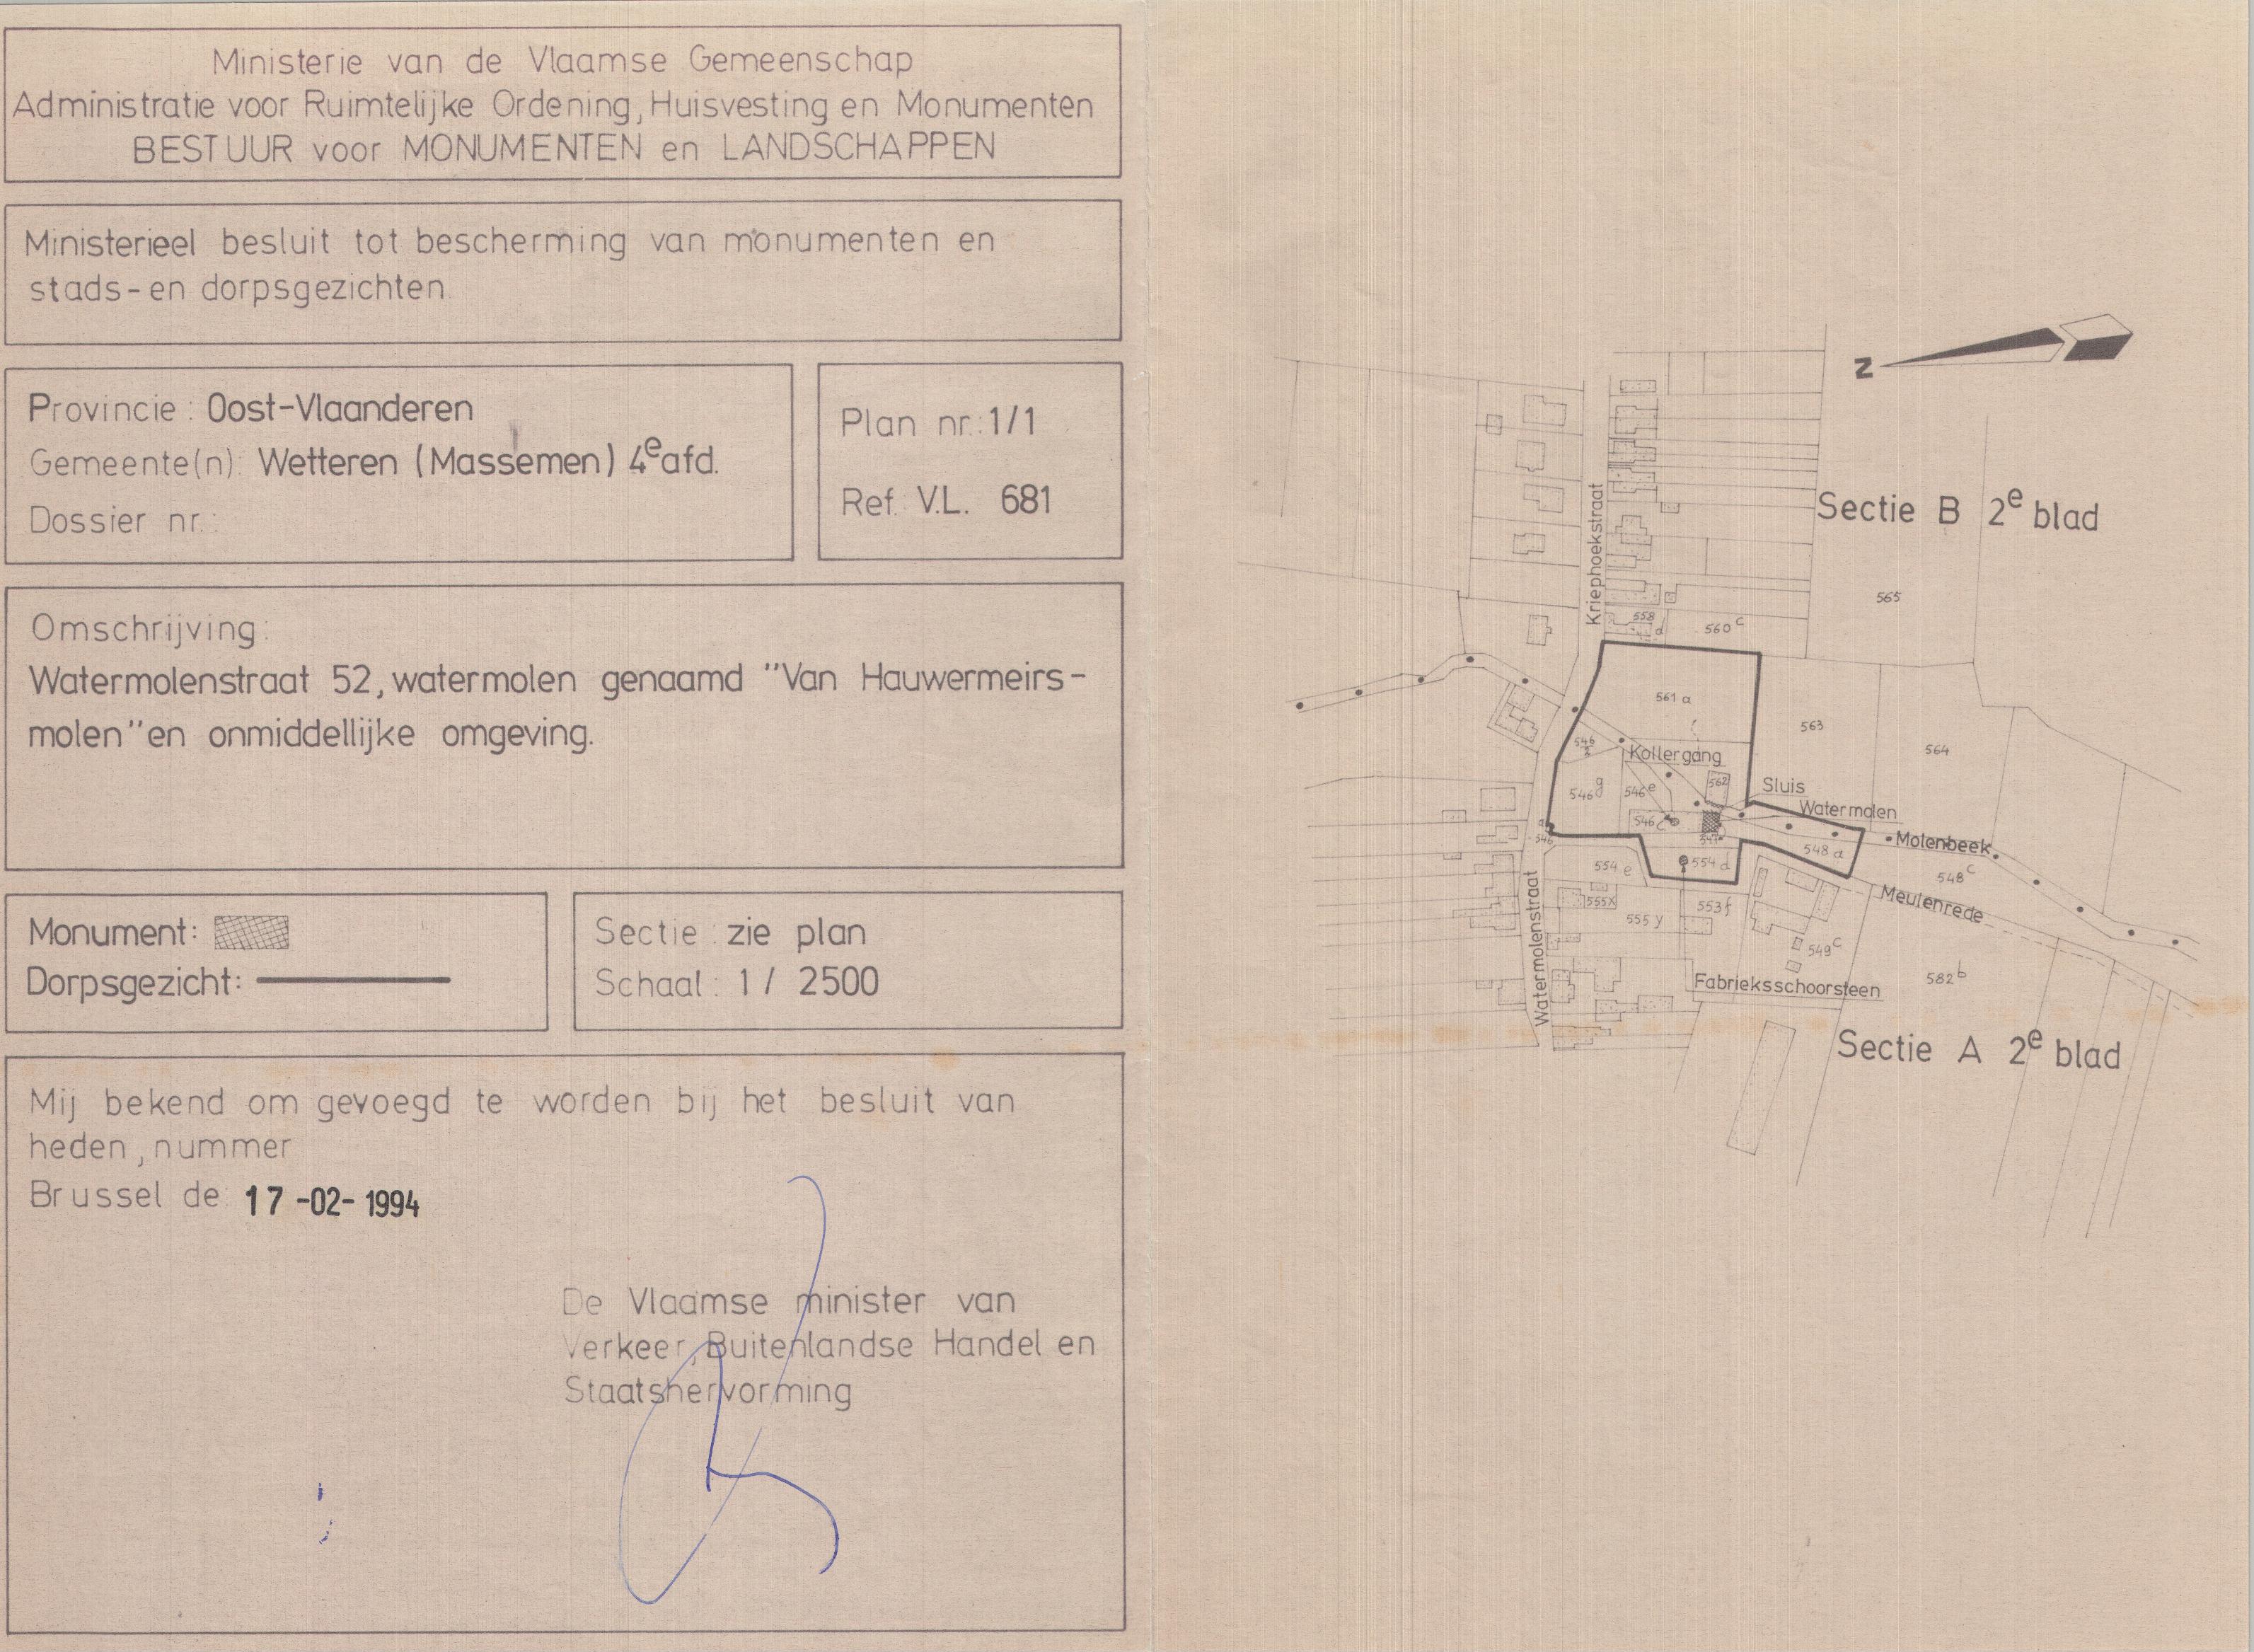 Ministerie van de Vlaamse Gemeenschap
Administratie voor Ruimtelijke Ordening, Huisvesting en Monumenten
BESTUUR voor MONUMENTEN en LANDSCHAPPEN
Ministerieel besluit tot bescherming van monumenten en
stads-en dorpsgezichten
Provincie : Oost-Vlaanderen
Gemeente(n): Wetteren (Massemen) 4e afd.
Dossier nr.:
Plan nr.: 1/1
Ref. V.L. 681
Omschrijving:
Watermolenstraat 52, watermolen genaamd "Van Hauwermeirs-
molen" en onmiddellijke omgeving.
Monument:
Dorpsgezicht:
Sectie : zie plan
Schaal : 1 / 2500
Mij bekend om gevoegd te worden bij het besluit van
heden, nummer
Brussel de: 17-02-1994
De Vlaamse minister van
Verkeer, Buitenlandse Handel en
Staatshervorming
N
Sectie B 2e blad
Kriephoekstraat
565
558 d
560 c
561 a
563
564
546/2
Kollergang
562
Sluis
546 g
546 e
Watermolen
546 c
547
Molenbeek
546
548 a
554 e
554 d
548 c
Meulenrede
555 x
553 f
555 y
549 c
Watermolenstraat
582 b
Fabrieksschoorsteen
Sectie A 2e blad